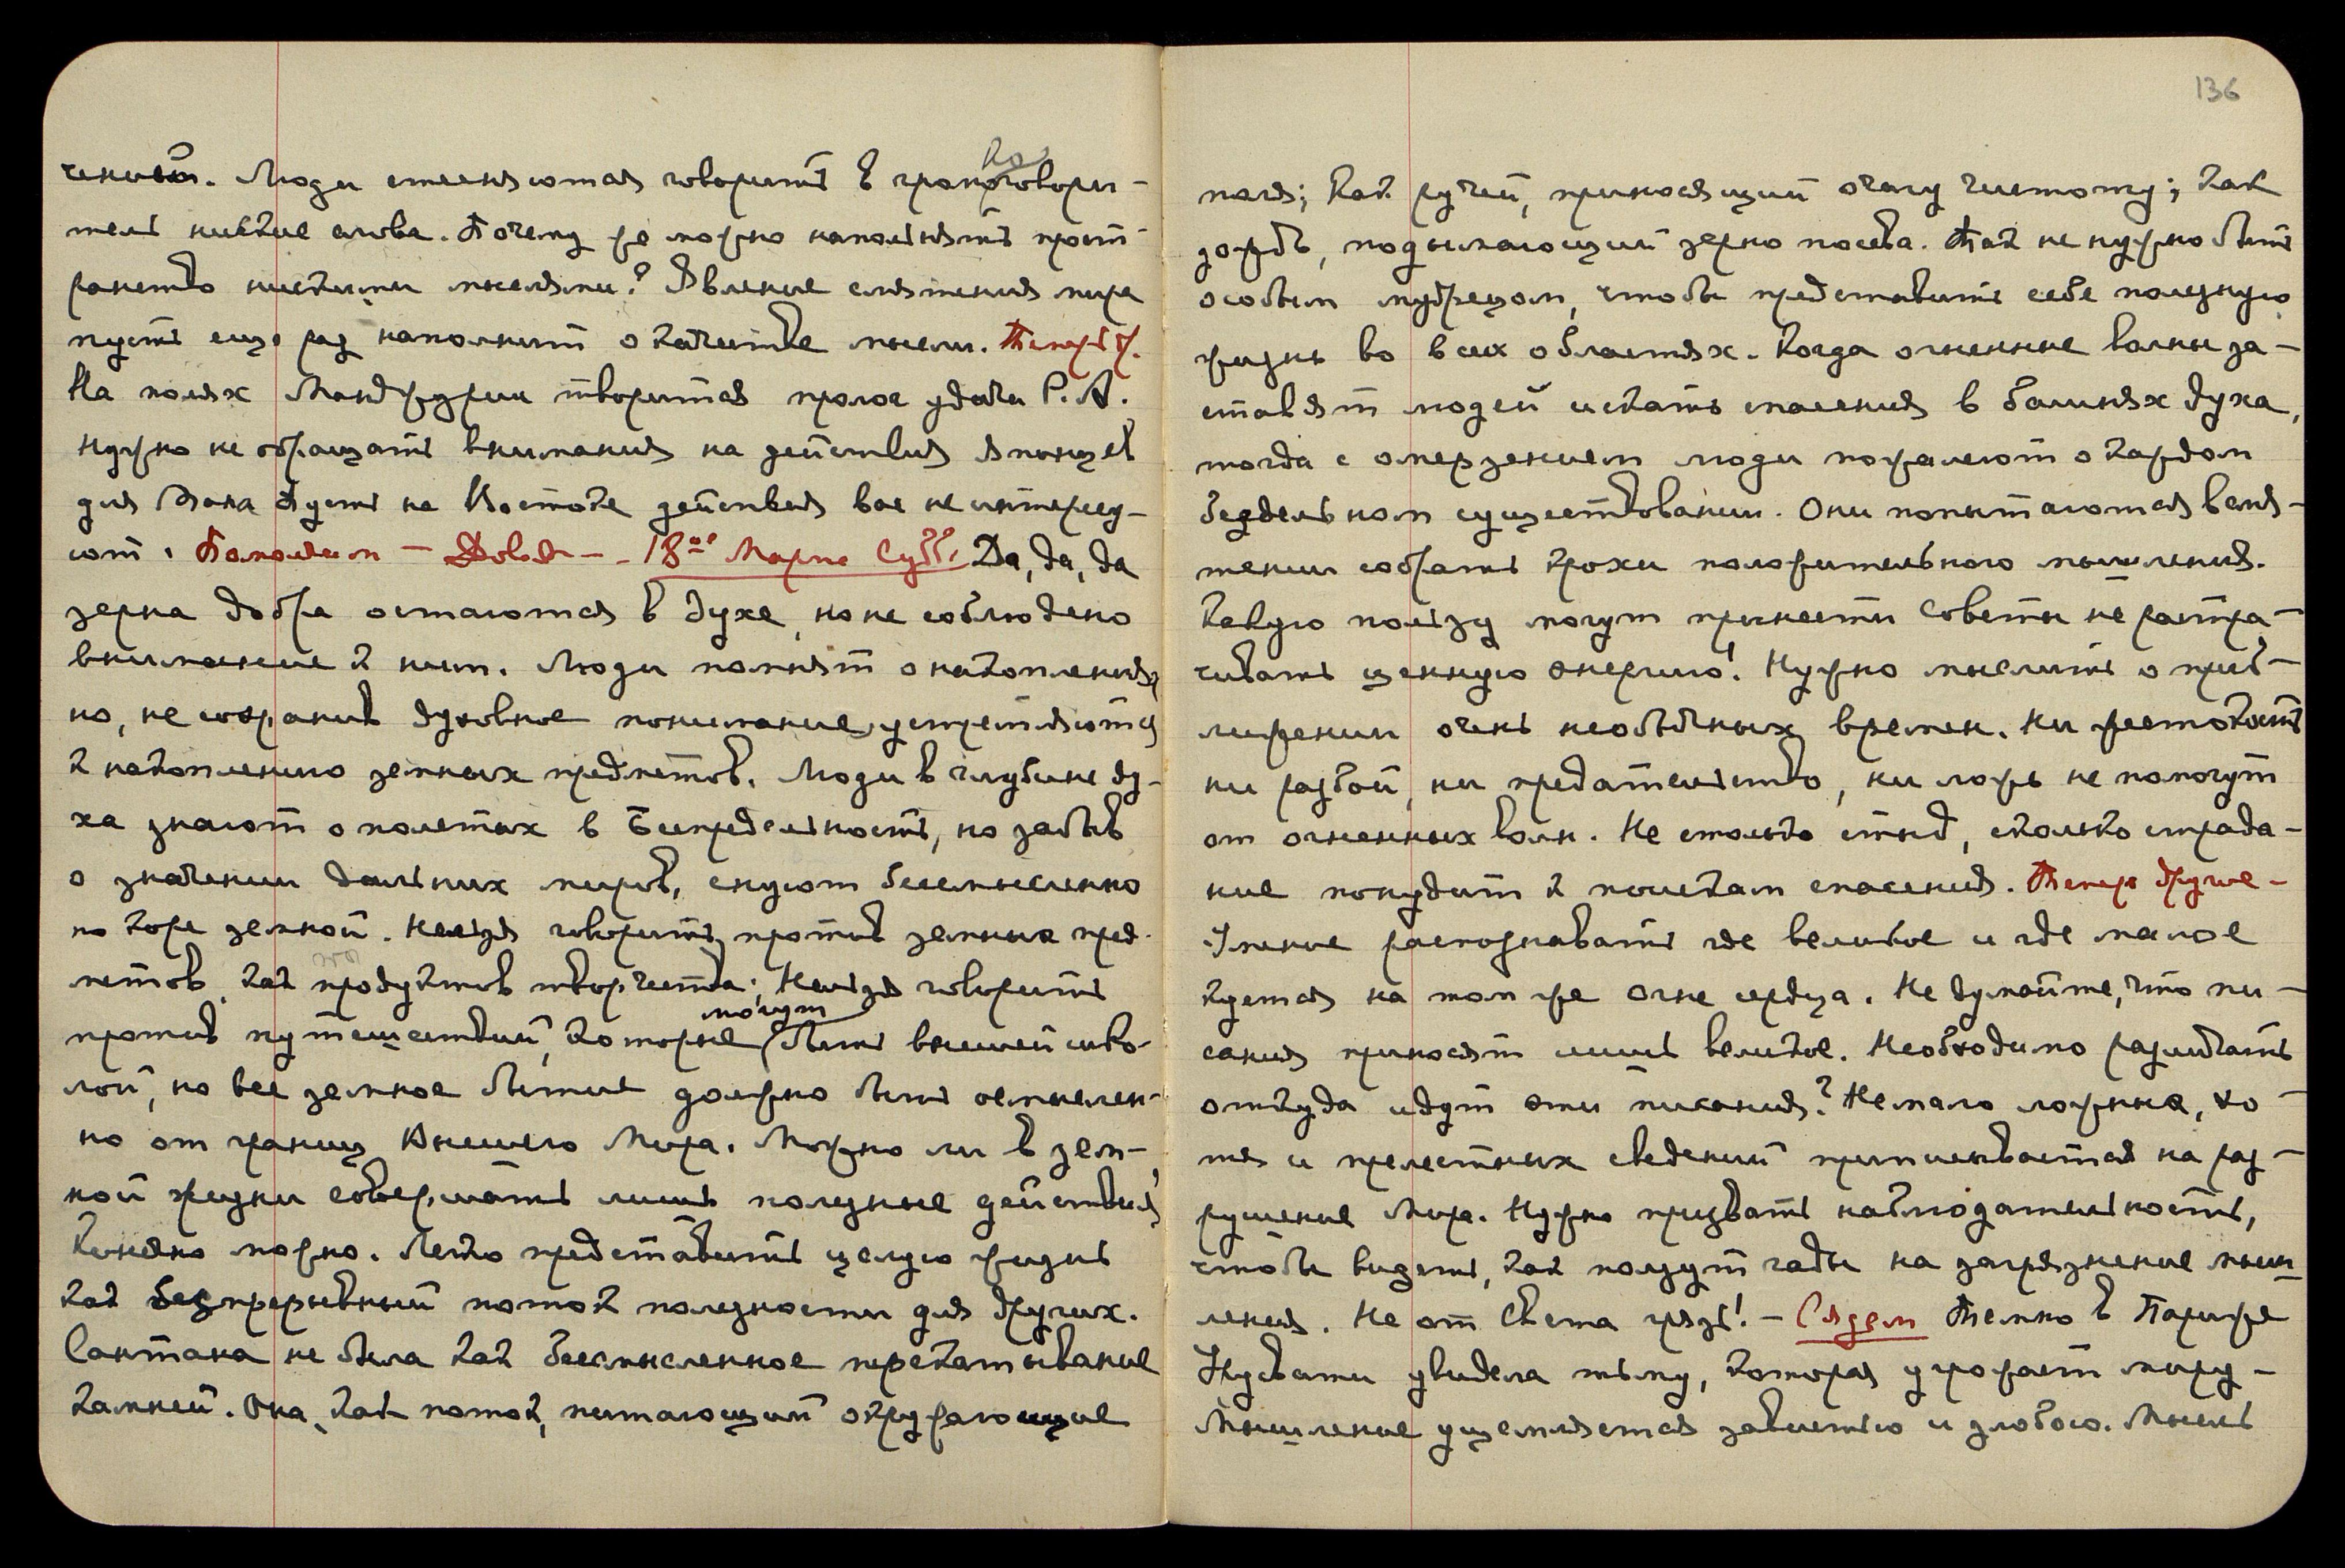 чений. Люди стесняются говорить в громкоговори-
тель низкие слова. Почему же можно наполнять прост-
ранство низкими мыслями? Явление смятения мира
пусть еще раз напомнит о качестве мысли. Теперь др.
На полях Манджурии творится пролог удачи Р. А.
Нужно не обращать внимания на действия японцев
для Вана Пусть на Востоке действия вас не интересу-
ют. Помолчим — Довод — 18ое Марта Субб. Да, да, да
зерна добра остаются в духе, но не соблюдено
внимание к ним. Люди помнят о накоплениях
но, не сохранив духовное понимание, устремляются
к накоплению земных предметов. Люди в глубине ду-
ха знают о полетах в Беспредельность, но забыв
о значении дальних миров, снуют бессмысленно
по коре земной. Нельзя говорить против земных пред-
метов, как продуктов творчества; Нельзя говорить
против путешествий, которые могут быть высшей шко-
лой, но все земное бытие должно быть осмыслен-
но от границ Высшего Мира. Можно ли в зем-
ной жизни совершать лишь полезные действия,
конечно можно. Легко представить целую жизнь
как безпрерывный поток полезности для других.
Сантана не была как бессмысленное перекатывание
камней. Она, как поток, питающий окружающие
136
поля; как ручей, приносящий очагу чистоту; как
дождь, подымающий зерно посева. Так не нужно быть
особым мудрецом, чтобы представить себе полезную
жизнь во всех областях. Когда огненные волны за-
ставят людей искать спасения в башнях духа,
тогда с омерзением люди пожалеют о каждом
бездельном существовании. Они попытаются в смя-
тении собрать крохи положительного мышления.
Какую пользу могут принести советы не растра-
чивать ценную энергию! Нужно мыслить о приб-
лижении очень необычных времен. Ни жестокость
ни разбой, ни предательство, ни ложь не помогут
от огненных волн. Не столько стыд, сколько страда-
ние понудит к поискам спасения. Теперь другое —
Умение распознавать где великое и где малое
куется на том же огне сердца. Не думайте, что пи-
сания приносят лишь великое. Необходимо различать
откуда идут эти писания? Немало ложных, хо-
тя и прелестных сведений приписывается на раз-
рушение Мира. Нужно призвать наблюдательность,
чтобы видеть, как ползут гады на загрязнение мыш-
ления. Не от Света грязь! — Сядем Темно в Париже
Урусвати увидела тьму, которая угрожает миру —
Мышление ущемляется завистью и злобою. Мысль